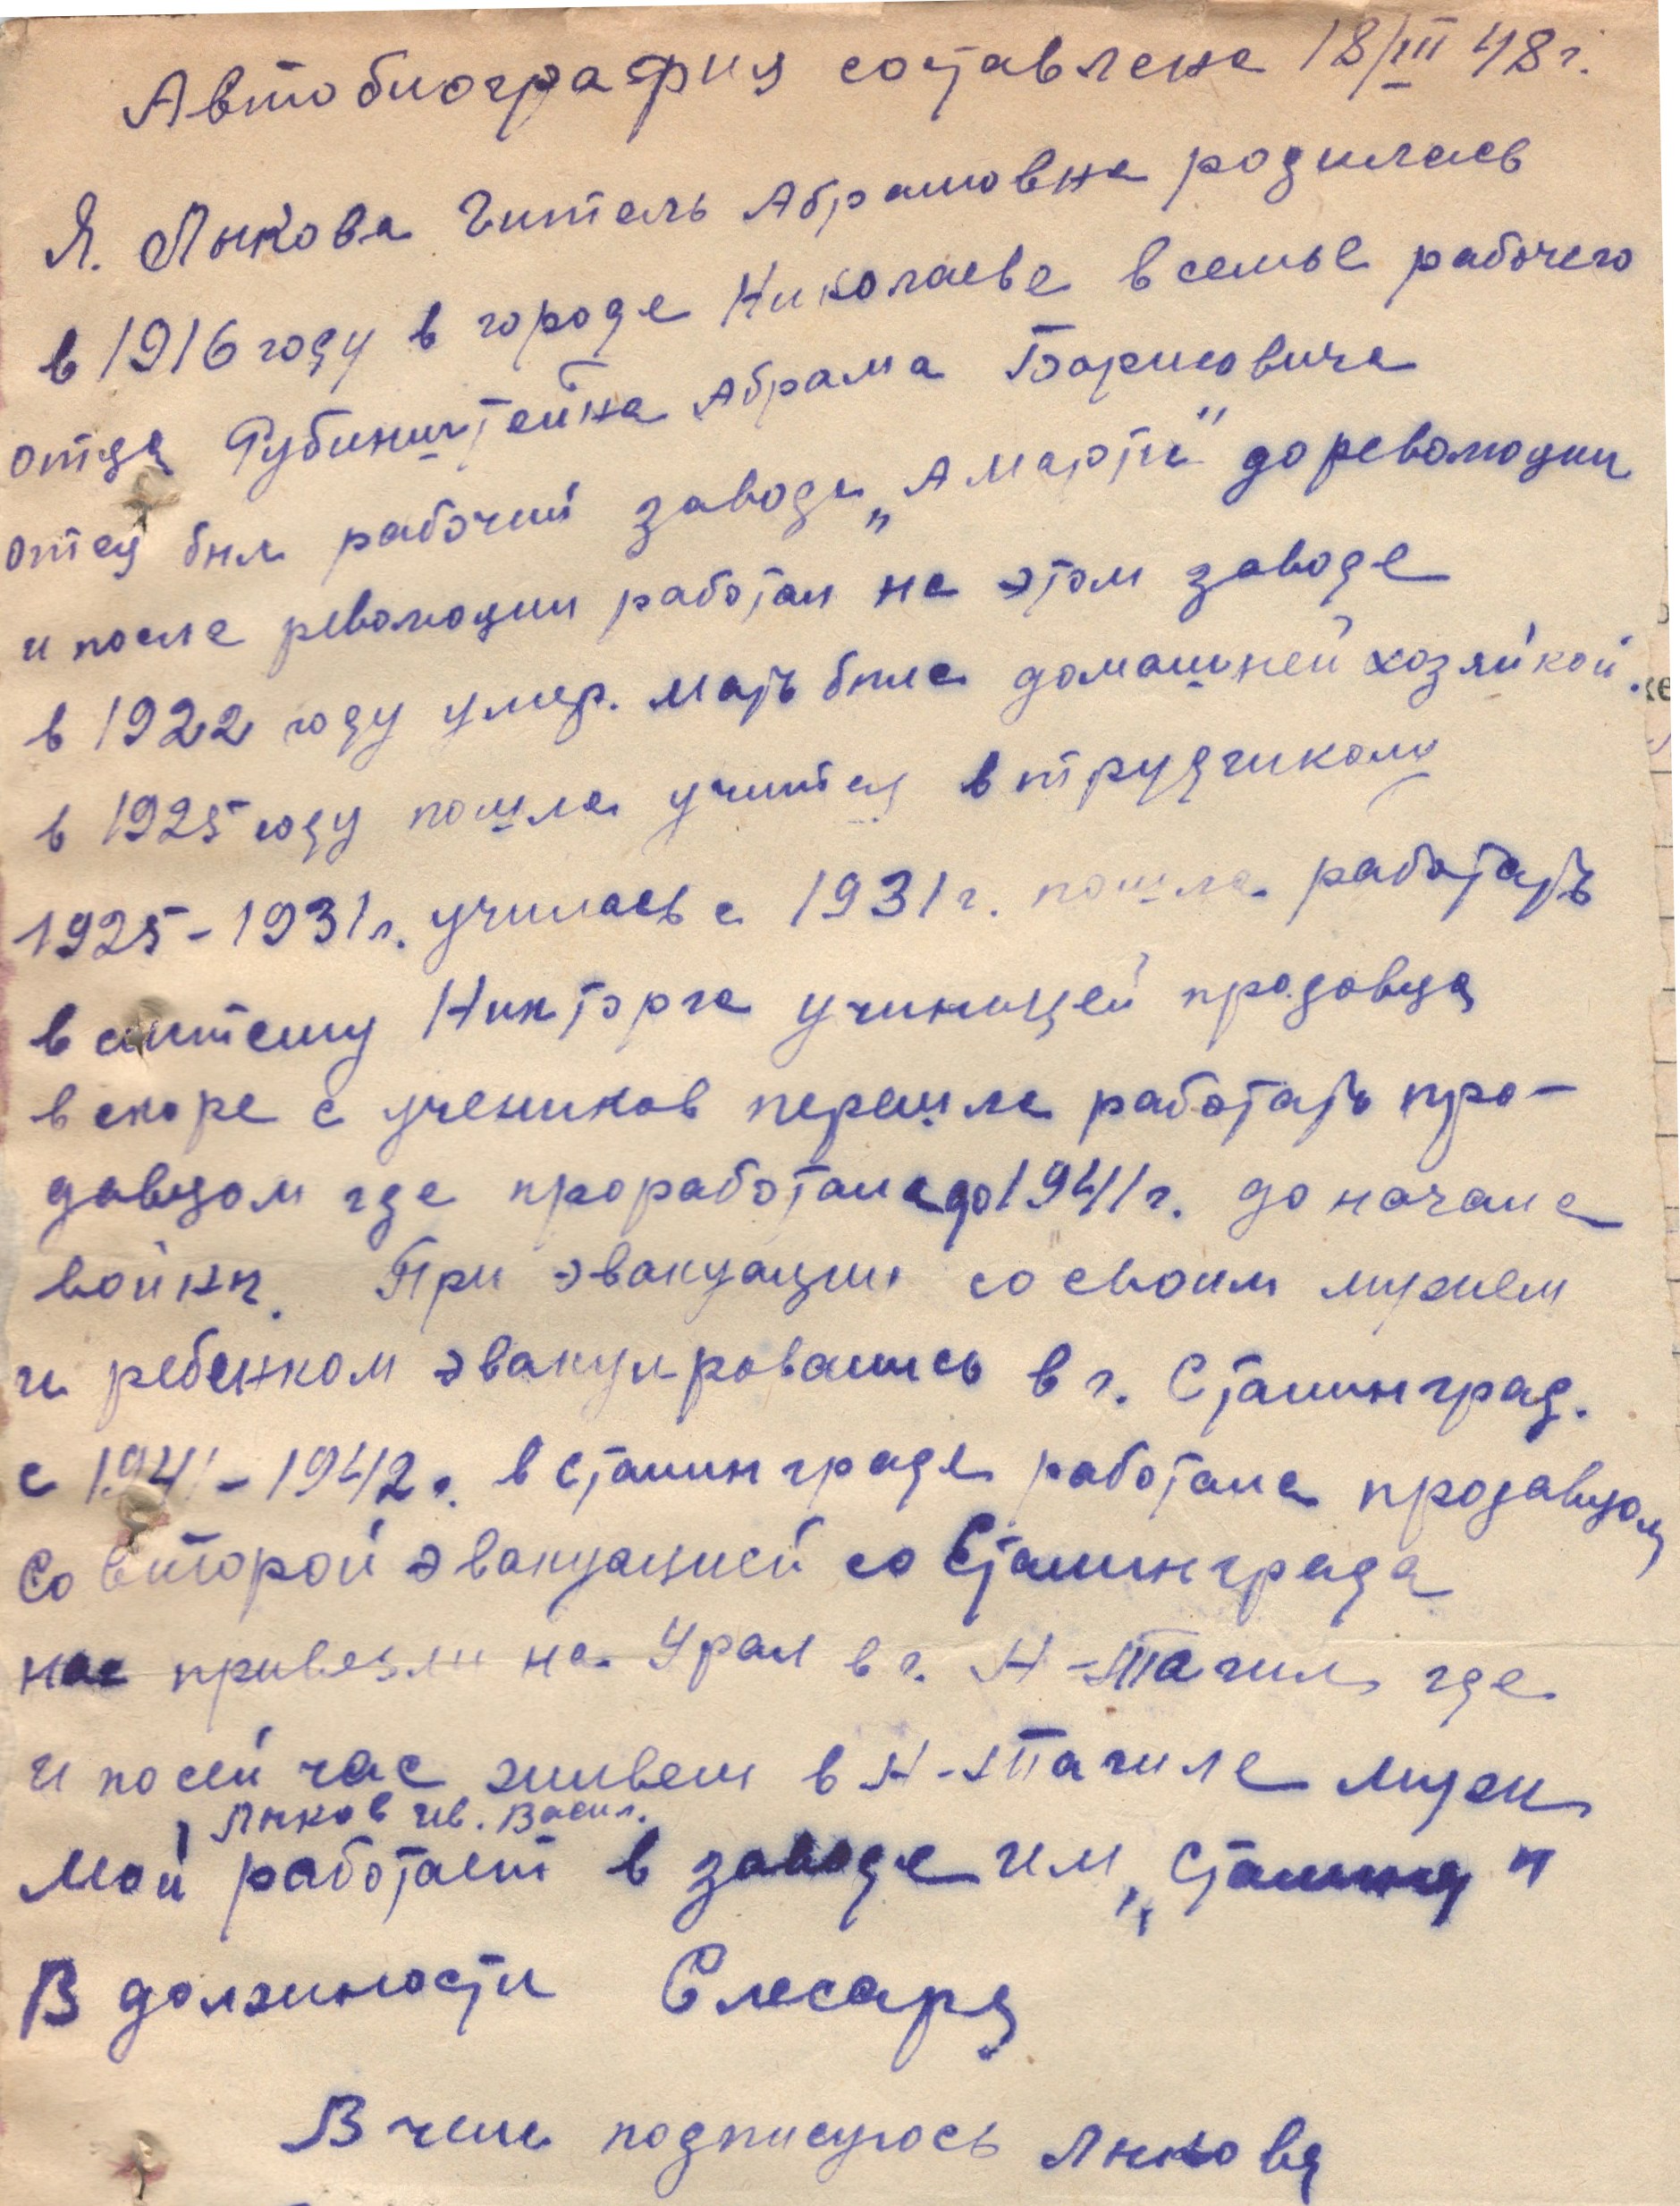 Автобиография составлена 18/III 48 г.
Я. Лыкова Гитель Абрамовна родилась
в 1916 году в городе Николаеве в семье рабочего
отца Рубинштейна Абрама Борисовича
отец был рабочий завода „А Марти" до революции
и после революции работал на этом заводе
в 1922 году умер. мать была домашней хозяйкой.
в 1925 году пошла учится в трудшколу
1925-1931 г. училась с 1931 г. пошла работать
в систему Никторга ученицей продавца
в скоре с учеников перешла работать про-
давцом где проработала до 1941 г. до начала
войны. При эвакуации со своим мужем
и ребенком эвакуировались в г. Сталинград.
с 1941-1942 г. в Сталинграде работала продавцом
Со второй эвакуацией со Сталинграда
нас привезли на Урал в г. Н-Тагил где
и посей час живем в Н-Тагиле муж
Лыков Ив. Васил.
мой работает в заводе им „Сталина"
В должности Слесаря
В чем подписуюсь Лыкова